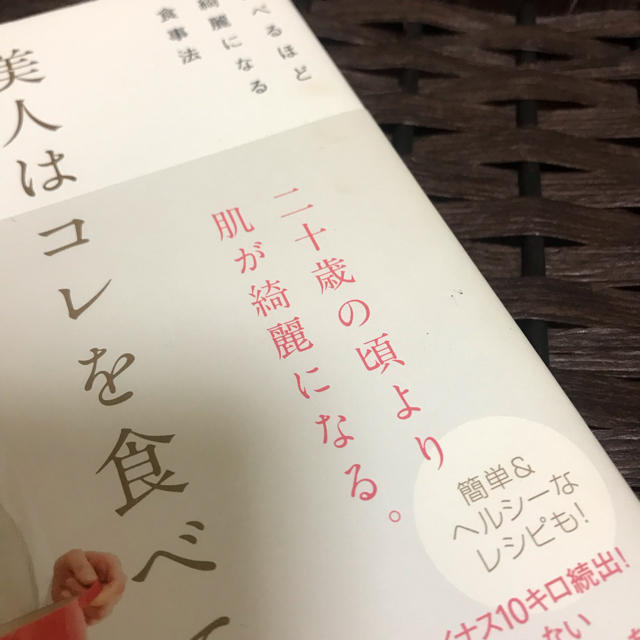 べるほど
綺麗になる
食事法
美人はコレを食べて
二十歳の頃より
肌が綺麗になる。
簡単&
ヘルシーな
レシピも!
イナス10キロ続出!
ない